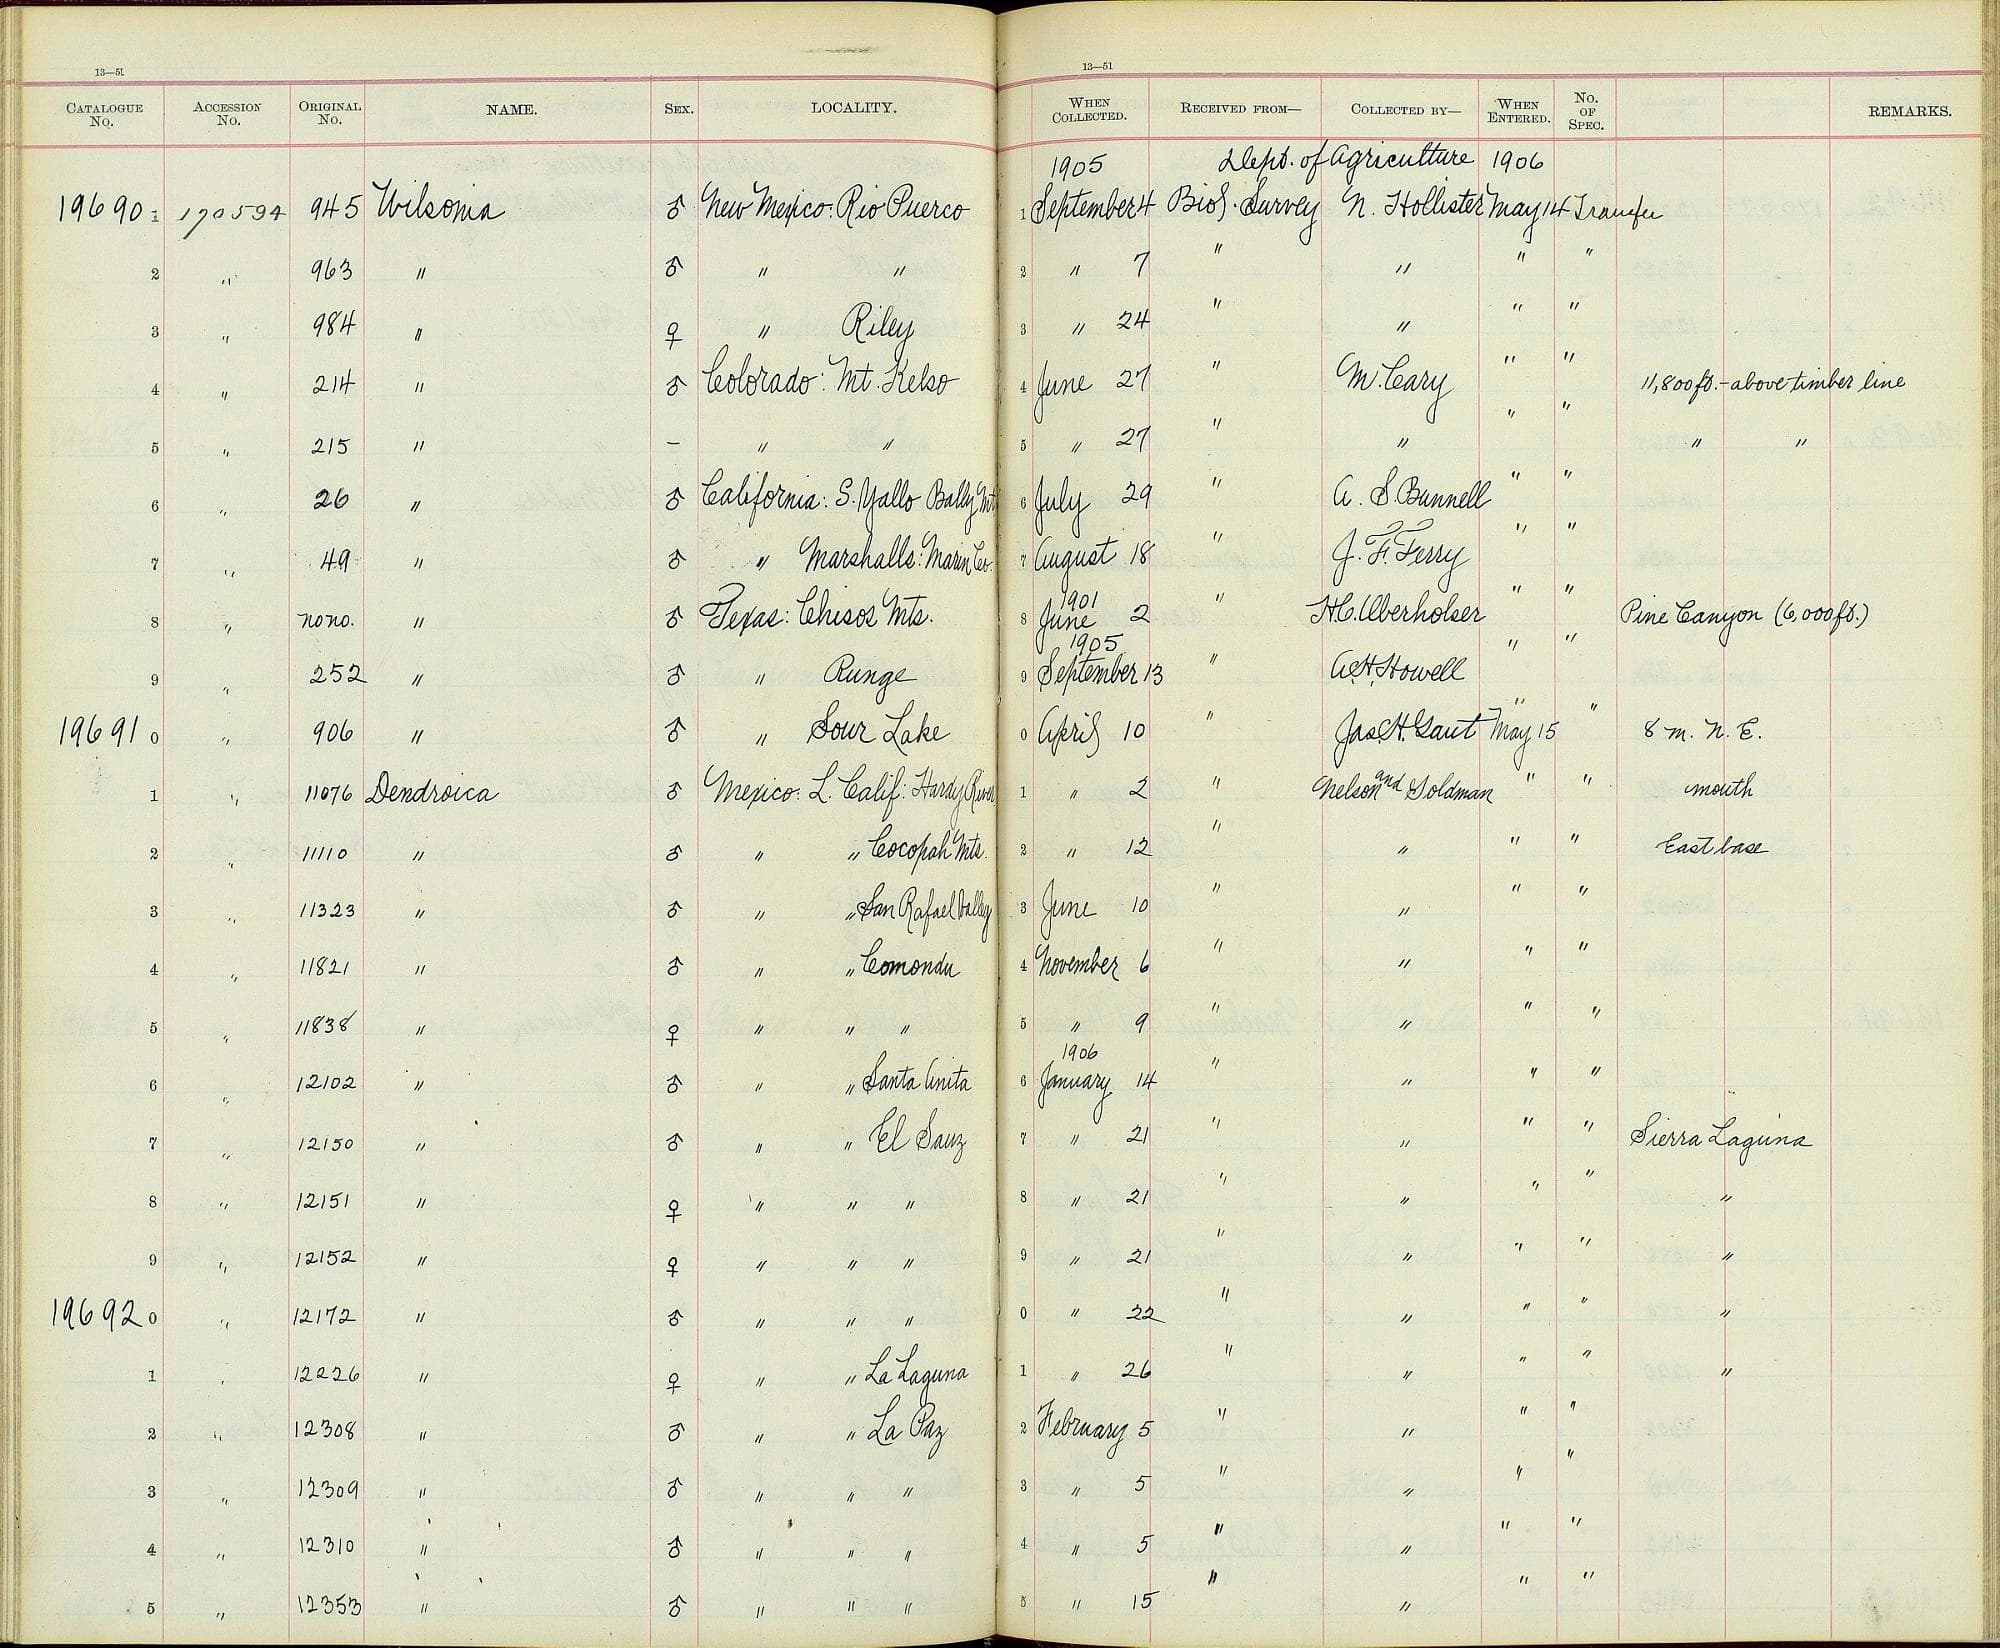 13—51
CATALOGUE No. ACCESSION No. ORIGINAL No. NAME. SEX. LOCALITY.
19690 1 170594 945 Wilsonia ♂ New Mexico: Rio Puerco
2 " 963 " ♂ " "
3 " 984 " ♀ " Riley
4 " 214 " ♂ Colorado: Mt. Kelso
5 " 215 " – " "
6 " 26 " ♂ California: S. Yallo Bally Mt
7 " 49 " ♂ " Marshalls: Marin Co.
8 " no no. " ♂ Texas: Chisos Mts.
9 " 252 " ♂ " Runge
19691 0 " 906 " ♂ " Sour Lake
1 " 11076 Dendroica ♂ Mexico: L. Calif: Hardy River
2 " 11110 " ♂ " " Cocopah Mts.
3 " 11323 " ♂ " " San Rafael Valley
4 " 11821 " ♂ " " Comondu
5 " 11838 " ♀ " " "
6 " 12102 " ♂ " " Santa Anita
7 " 12150 " ♂ " " El Sauz
8 " 12151 " ♀ " " "
9 " 12152 " ♀ " " "
19692 0 " 12172 " ♂ " " "
1 " 12226 " ♀ " " La Laguna
2 " 12308 " ♂ " " La Paz
3 " 12309 " ♂ " " "
4 " 12310 " ♂ " " "
5 " 12353 " ♂ " " "
13—51
WHEN COLLECTED. RECEIVED FROM— COLLECTED BY— WHEN ENTERED. No. OF SPEC. REMARKS.
1905 Dept. of Agriculture 1906
1 September 4 Biol. Survey N. Hollister May 14 Transfer
2 " 7 " " " "
3 " 24 " " " "
4 June 27 " M. Cary " " 11,800 ft. – above timber line
5 " 27 " " " " " "
6 July 29 " A. S. Bunnell " "
7 August 18 " J. F. Ferry " "
1901
8 June 2 " H.C. Oberholser " " Pine Canyon (6,000 ft.)
1905
9 September 13 " A.H. Howell " "
0 April 10 " Jas. H. Gaut May 15 " 8 m. N. E.
1 " 2 " Nelson and Goldman " " mouth
2 " 12 " " " " East base
3 June 10 " " " "
4 November 6 " " " "
5 " 9 " " " "
1906
6 January 14 " " " "
7 " 21 " " " " Sierra Laguna
8 " 21 " " " " "
9 " 21 " " " " "
0 " 22 " " " " "
1 " 26 " " " " "
2 February 5 " " " "
3 " 5 " " " "
4 " 5 " " " "
5 " 15 " " " "